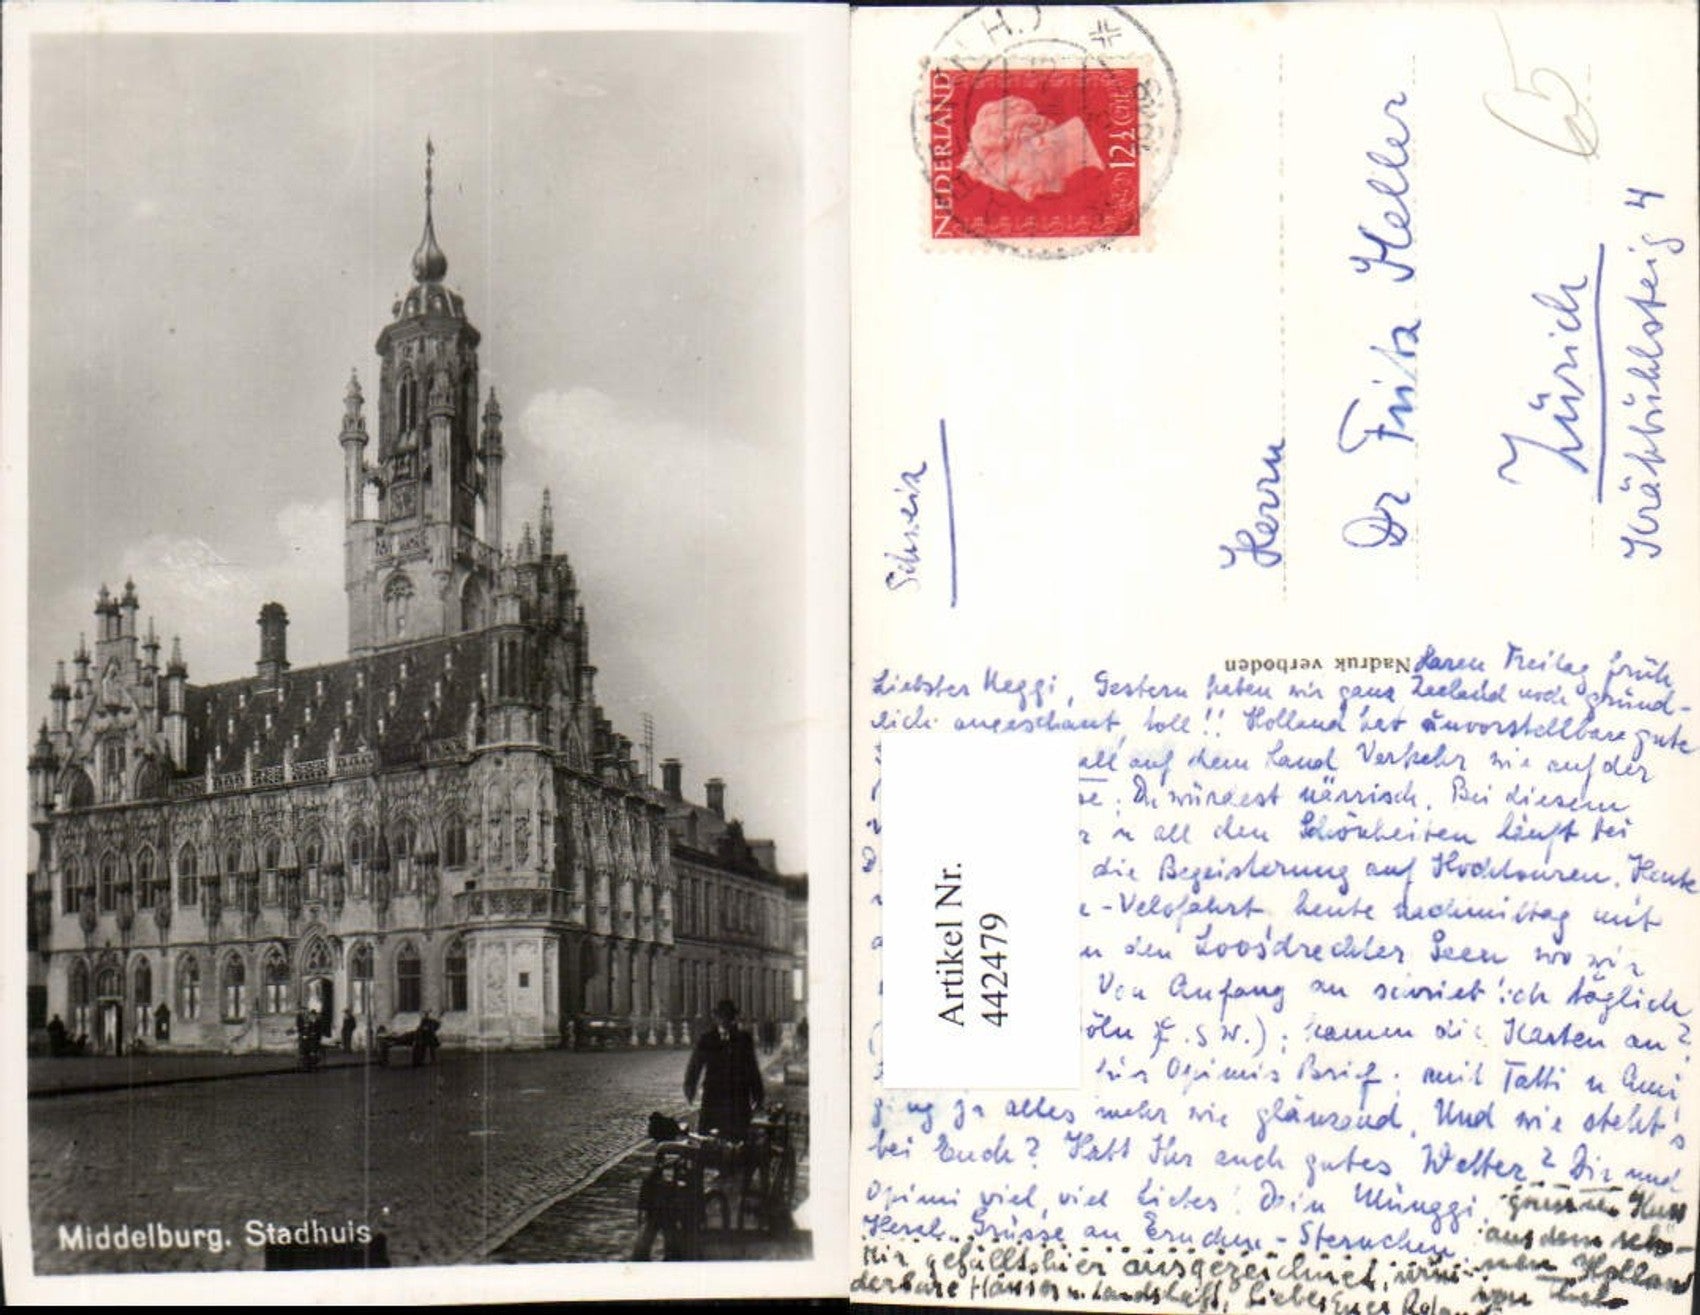 Middelburg. Stadhuis
NEDERLAND
12½ cnt
65
Schweiz
Herrn
Dr Fritz Heller
Zürich
Krähbühlsteig 4
Nadruk verboden
Artikel Nr.
442479
Freitag früh
Liebster Meggi, Gestern haben wir ganz Zeeland noch gründ-
lich angeschaut, toll!! Holland hat unvorstellbare gute
all auf dem Land Verkehr wie auf der
Du würdest närrisch. Bei diesem
u all den Schönheiten läuft bei
die Begeisterung auf Hochtouren. Heute
-Velofahrt, heute nachmittag mit
den Loosdrechter Seen wo wir
Von Anfang an schrieb ich täglich
öln u.s.w.); kamen die Karten an?
Opimis Brief; mit Tatti u Ami
ging ja alles mehr wie glänzend. Und wie steht's
bei Euch? Habt Ihr auch gutes Wetter? Dir und
Opimi viel, viel Liebes! Dein Münggi
Herzl. Grüsse an
aus dem schö-
nen Holland
von
Mir gefällts hier ausgezeichnet,
derbare Häuser u. Landschaft,